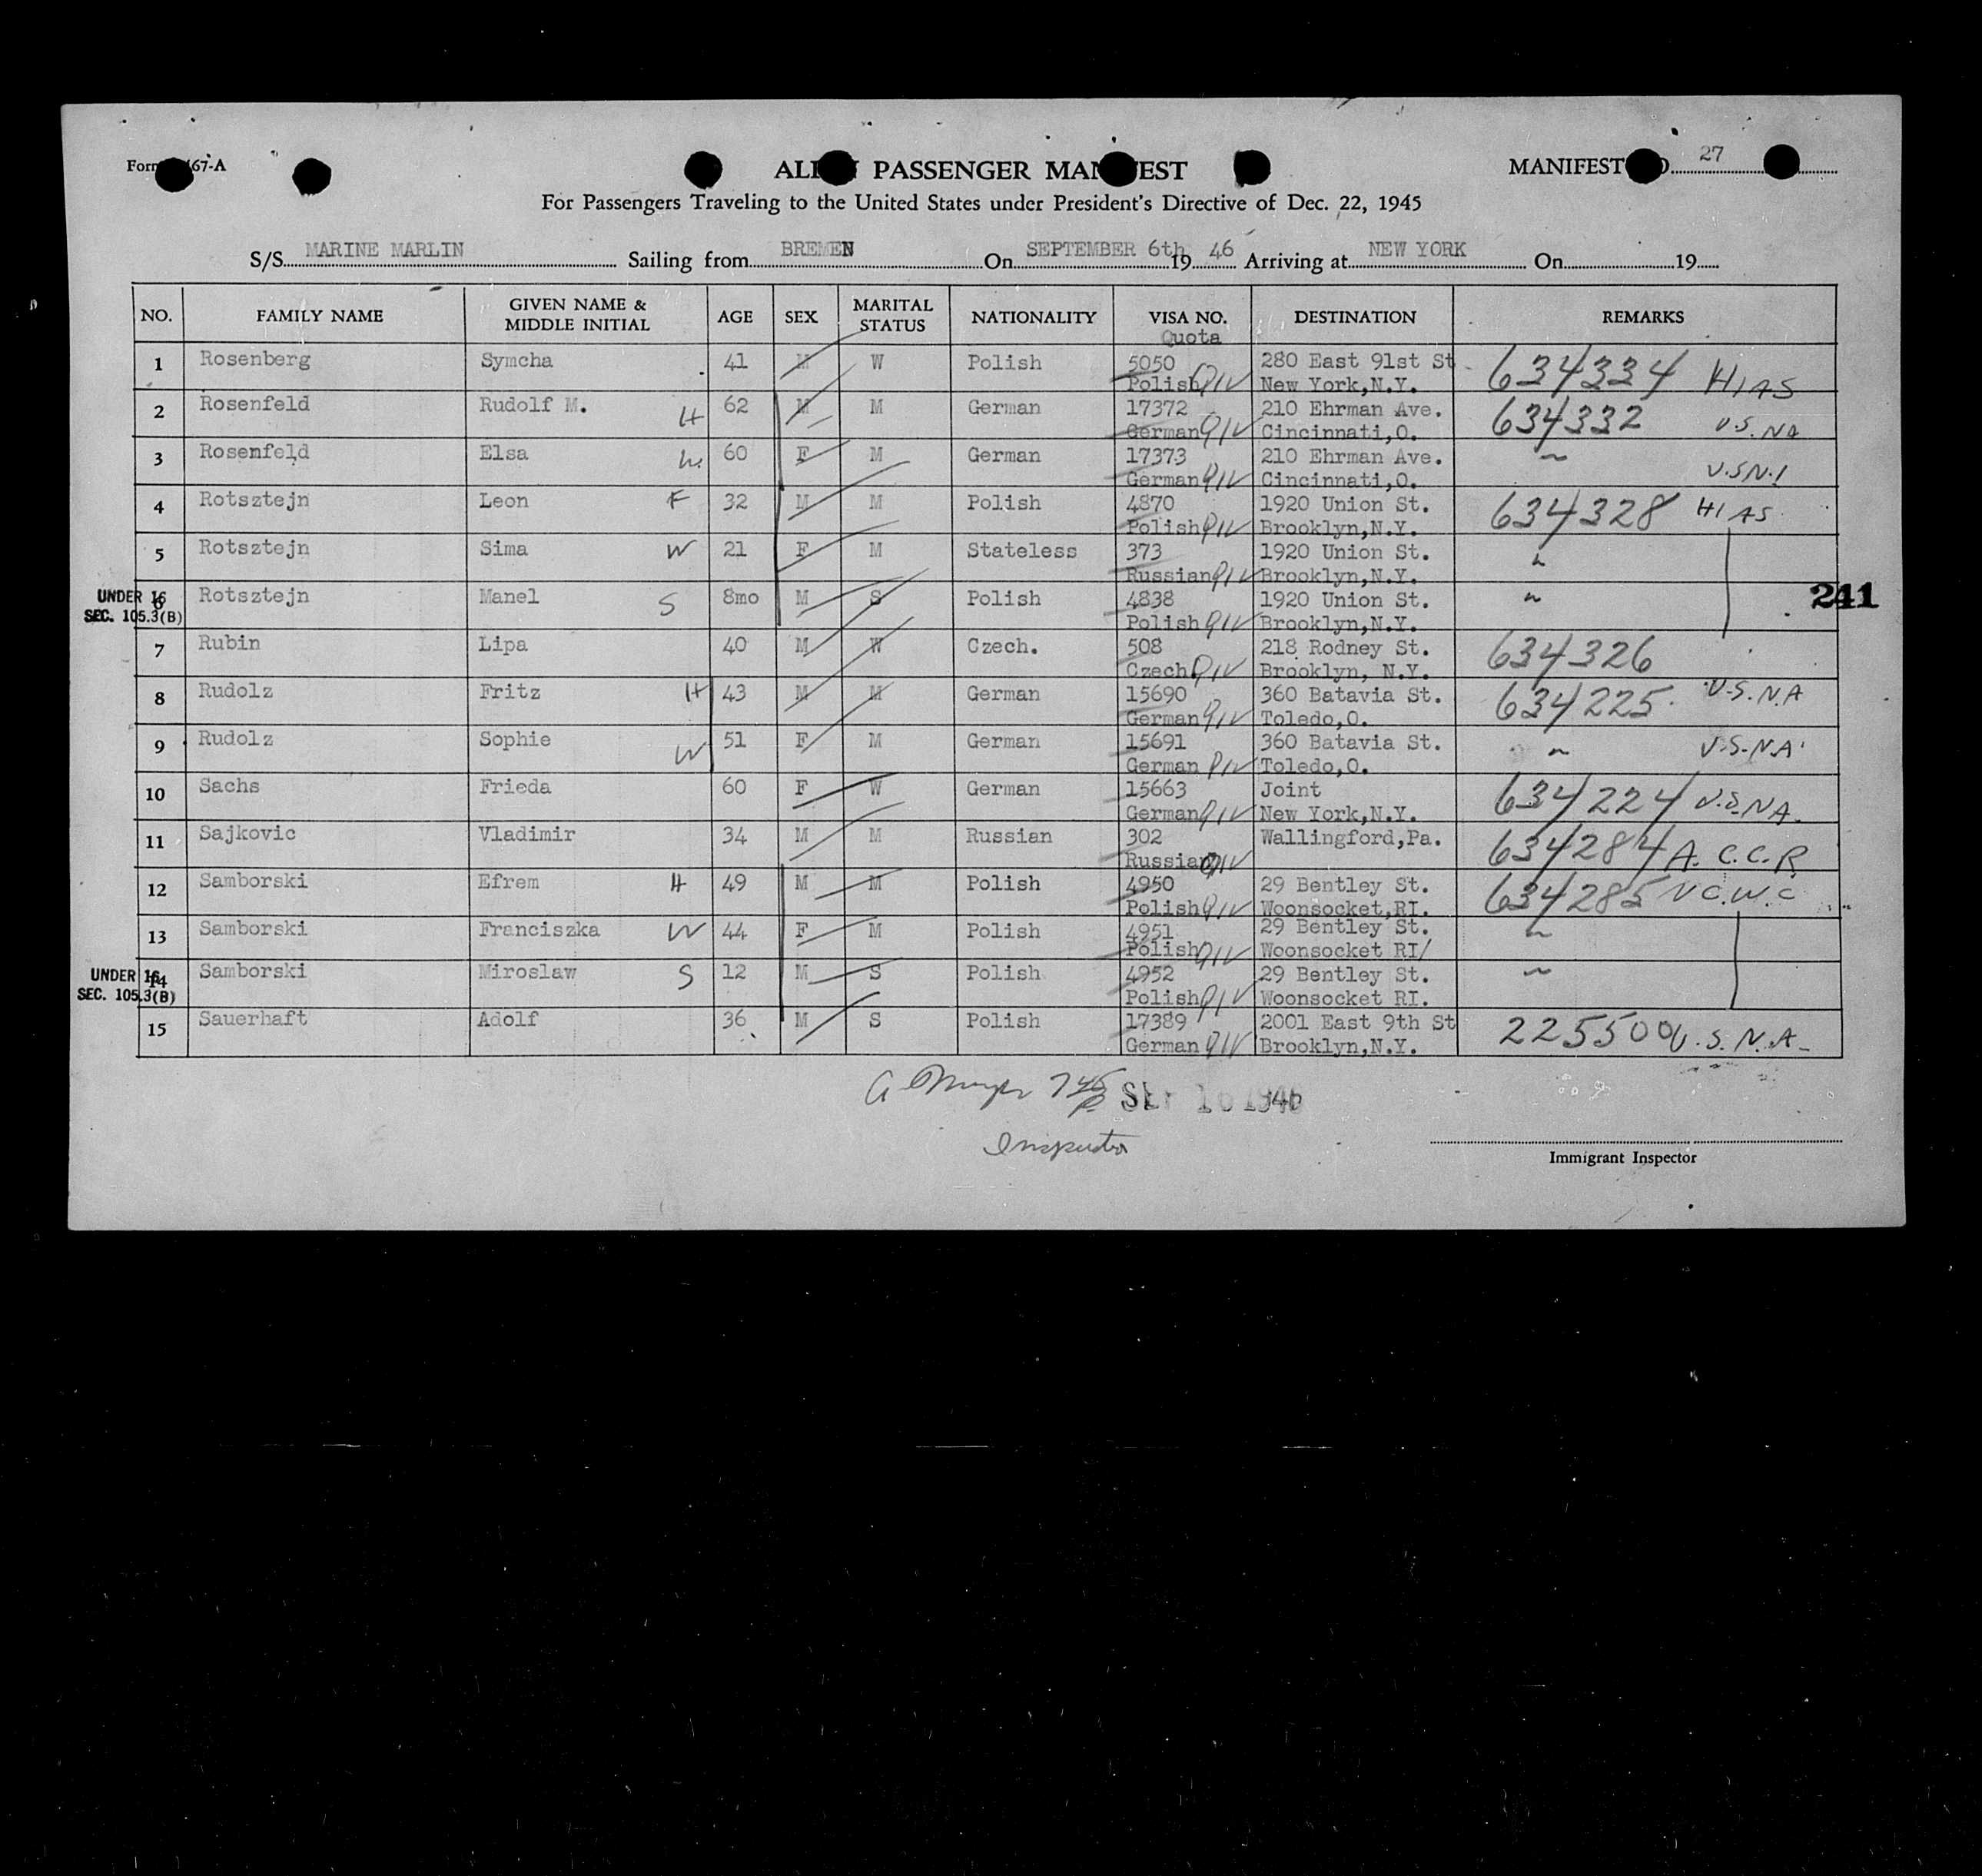 Form 67-A
ALIEN PASSENGER MANIFEST
MANIFEST NO. 27
For Passengers Traveling to the United States under President's Directive of Dec. 22, 1945
S/S MARINE MARLIN Sailing from BREMEN On SEPTEMBER 6th 19 46 Arriving at NEW YORK On 19
NO. FAMILY NAME GIVEN NAME & MIDDLE INITIAL AGE SEX MARITAL STATUS NATIONALITY VISA NO. Quota DESTINATION REMARKS
1 Rosenberg Symcha 41 M W Polish 5050 280 East 91st St 634334 HIAS
Polish QIV New York,N.Y.
2 Rosenfeld Rudolf M. H 62 M M German 17372 210 Ehrman Ave. 634332 U.S.NA
German QIV Cincinnati,O.
3 Rosenfeld Elsa W. 60 F M German 17373 210 Ehrman Ave. " U.S.N.A
German QIV Cincinnati,O.
4 Rotsztejn Leon F 32 M M Polish 4870 1920 Union St. 634328 HIAS
Polish QIV Brooklyn,N.Y.
5 Rotsztejn Sima W 21 F M Stateless 373 1920 Union St. "
Russian QIV Brooklyn,N.Y.
UNDER 16 6 Rotsztejn Manel S 8mo M S Polish 4838 1920 Union St. " 241
SEC. 105.3(B) Polish QIV Brooklyn,N.Y.
7 Rubin Lipa 40 M W Czech. 508 218 Rodney St. 634326
Czech. QIV Brooklyn, N.Y.
8 Rudolz Fritz H 43 M M German 15690 360 Batavia St. 634225 U.S.N.A
German QIV Toledo,O.
9 Rudolz Sophie W 51 F M German 15691 360 Batavia St. " U.S.N.A
German QIV Toledo,O.
10 Sachs Frieda 60 F W German 15663 Joint 634224 U.S.NA.
German QIV New York,N.Y.
11 Sajkovic Vladimir 34 M M Russian 302 Wallingford,Pa. 634284 A.C.C.R.
Russian QIV
12 Samborski Efrem H 49 M M Polish 4950 29 Bentley St. 634285 N C.W.C
Polish QIV Woonsocket,RI.
13 Samborski Franciszka W 44 F M Polish 4951 29 Bentley St. "
Polish QIV Woonsocket RI/
UNDER 16 14 Samborski Miroslaw S 12 M S Polish 4952 29 Bentley St. "
SEC. 105.3(B) Polish QIV Woonsocket RI.
15 Sauerhaft Adolf 36 M S Polish 17389 2001 East 9th St 225500 U.S.N.A.
German QIV Brooklyn,N.Y.
SEP 16 1946
Inspector
Immigrant Inspector